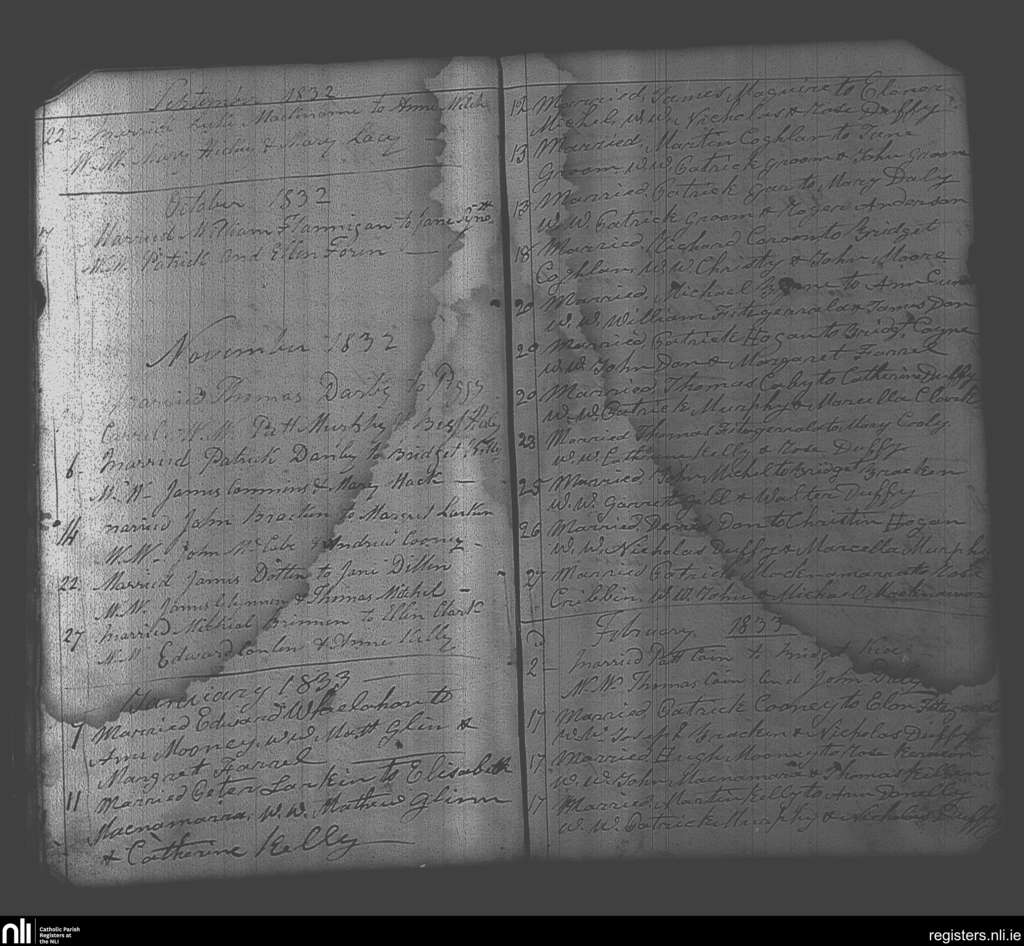 September 1832
22 Married Luke Macknamara to Anne
W.W. Mary & Mary Lacy
October 1832
Married William Flannigan to Jane
W.W. Patrick and Ellen
November 1832
Married Thomas Darby to Pegy
W.W. Patt Murphy &
6 Married Patrick Danby to Bridget Kelly
W.W. James Commins & Mary Hack
14 married John Bracken to Margret Larkin
W.W. John McCabe & Andrew Cooney
22 Married James Dottin to Jane Dillin
W.W. James Glynnn & Thomas Mitchel
27 married Michial Brinnen to Ellin Clark
W.W. Edward Conlin & Anne Kelly
January 1833
9 Married Edward Wheelahon to
Ann Mooney, w.w. Matt Glin &
Margret Farrel
11 Married Peter Larkin to Elisabeth
Macnamarra, w.w. Mathew Glinn
& Catherine Kelly
12 Married, James Maguire to Elonor
Michel, W.W. Nicholas & Rose Duffy
13 Married, Martin Coghlan to Jane
Groom, W.W. Patrick Groom & John Groom
13 Married Patrick to Mary Daly
W.W. Patrick Groom & Rogers Anderson
18 Married, Richard Coroon to Bridget
Coghlan, W.W. Christy & John Moore
20 Married, Michael Byrne to Ann
W.W. William Fitzgerrald & James Dan
20 Married Patrick Hogan to Bridgt. Coyne
W.W. John Dan & Margaret Farrel
20 Married, Thomas to Catherine Duffy
W.W. Patrick Murphy & Marcella Clark
23 Married Thomas Fitzgerrald to Mary
W.W. Catherine Kelly & Rose Duffy
25 Married, John Michel to Bridget Bracken
W.W. Garrett Gill & Walter Duffy
26 Married, Dennis Dan to Christin Hogan
W.W. Nicholas Duffy & Marcella Murphy
27 Married Patrick Macknamarra to Rose
Cribbin, W.W. John & Michael
February 1833
2 Married Patt Cain to Bridget
W.W. Thomas Cain and John Daly
17 Married Patrick Cooney to Elon
W.W. Joseph Bracken & Nicholas Duffy
17 Married Hugh Mooney to Rose Kennedy
W.W. John Macnamara & Thomas Killeen
17 Married, Martin Kelly to Ann Donelly
W.W. Patrick Murphy & Nicholas Duffy
nli Catholic Parish
Registers at
the NLI
registers.nli.ie